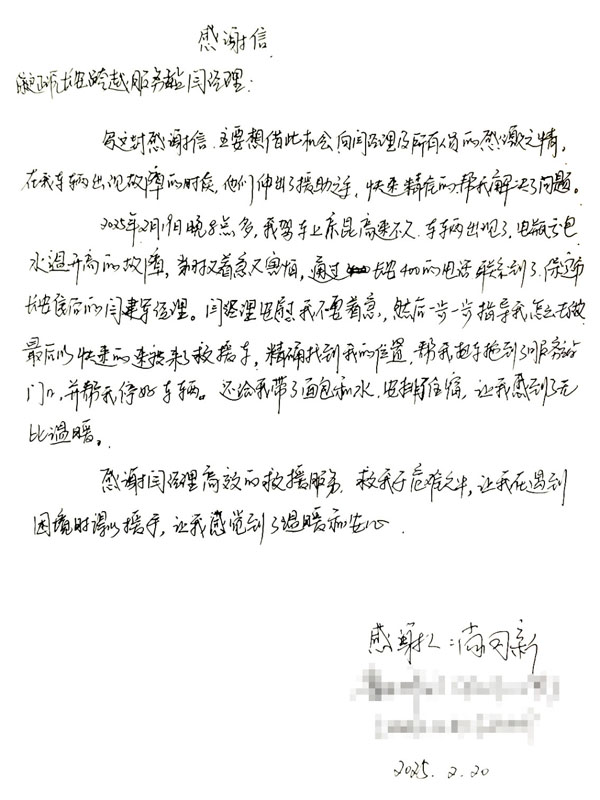 感谢信
长安跨越服务站闫经理:
写这封感谢信,主要想借此机会向闫经理及所有人员的感激之情,
在我车辆出现故障的时候,他们伸出了援助之手,快速精准的帮我解决了问题。
2025年2月19日晚8点多,我驾车上京昆高速不久,车辆出现了,电瓶亏包
水温升高的故障,当时又着急又害怕,通过长安400的电话联系到了,保定市
长安售后的闫建军经理。闫经理安慰我不要着急,然后一步一步指导我怎么去做
最后以快速的速度来了救援车,精确找到我的位置,帮我把车拖到了服务站
门口,并帮我停好车辆。还给我带了面包和水,安排住宿,让我感到了无
比温暖。
感谢闫经理高效的救援服务,救我于危难之中,让我在遇到
困境时得以援手,让我感觉到了温暖和安心.
感谢人:
2025.2.20